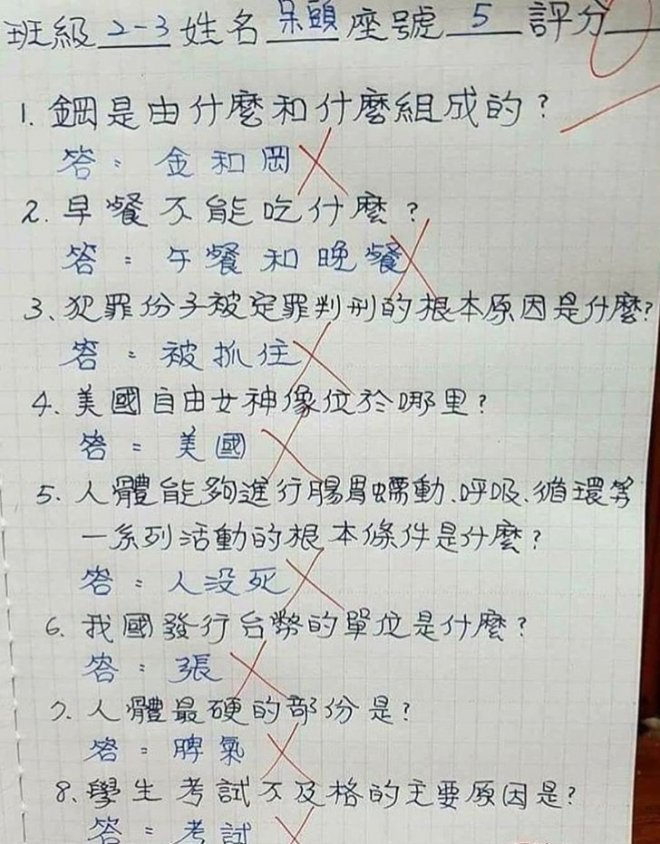 班級 2-3 姓名 呆頭 座號 5 評分
1. 鋼是由什麼和什麼組成的?
答: 金和岡
2. 早餐不能吃什麼?
答: 午餐和晚餐
3、犯罪份子被定罪判刑的根本原因是什麼?
答: 被抓住
4、美國自由女神像位於哪里?
答: 美國
5、人體能夠進行腸胃蠕動、呼吸、循環等
一系列活動的根本條件是什麼?
答: 人沒死
6、我國發行台幣的單位是什麼?
答: 張
7、人體最硬的部份是?
答: 脾氣
8、學生考試不及格的主要原因是?
答: 考試